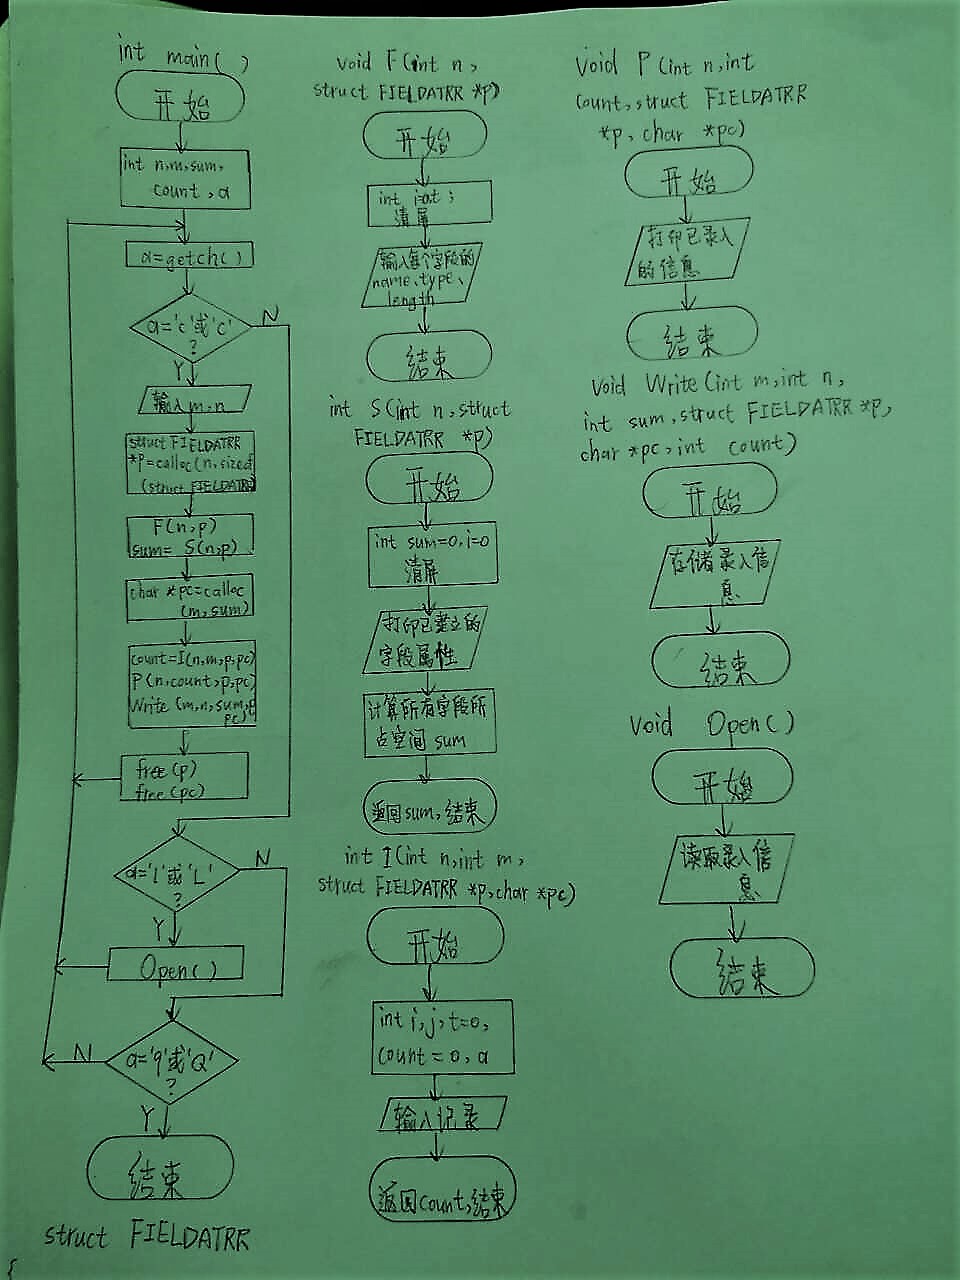 int main( )
开始
int n,m,sum,
count,a
a=getch( )
a='c'或'c'
?
N
Y
输入m,n
struct FIELDATRR
*p=calloc(n,sizeof
(struct FIELDATRR
F(n,p)
sum= S(n,p)
char *pc=calloc
(m,sum)
count=I(n,m,p,pc)
P(n,count,p,pc)
Write(m,n,sum,p
pc)
free(p)
free(pc)
a='l'或'L'
?
N
Y
Open( )
a='q'或'Q'
?
N
Y
结束
struct FIELDATRR
{
void F(int n,
struct FIELDATRR *p)
开始
int ;
清屏
输入每个字段的
name、type、
length
结束
int S(int n,struct
FIELDATRR *p)
开始
int sum=0,i=0
清屏
打印已建立的
字段属性
计算所有字段所
占空间 sum
返回sum,结束
int I(int n,int m,
struct FIELDATRR *p,char *pc)
开始
int i,j,t=0,
count=0,a
输入记录
返回count,结束
void P(int n,int
count,struct FIELDATRR
*p,char *pc)
开始
打印已录入
的信息
结束
void Write(int m,int n,
int sum,struct FIELDATRR *p,
char *pc,int count)
开始
存储录入信
息
结束
void Open( )
开始
读取录入信
息
结束